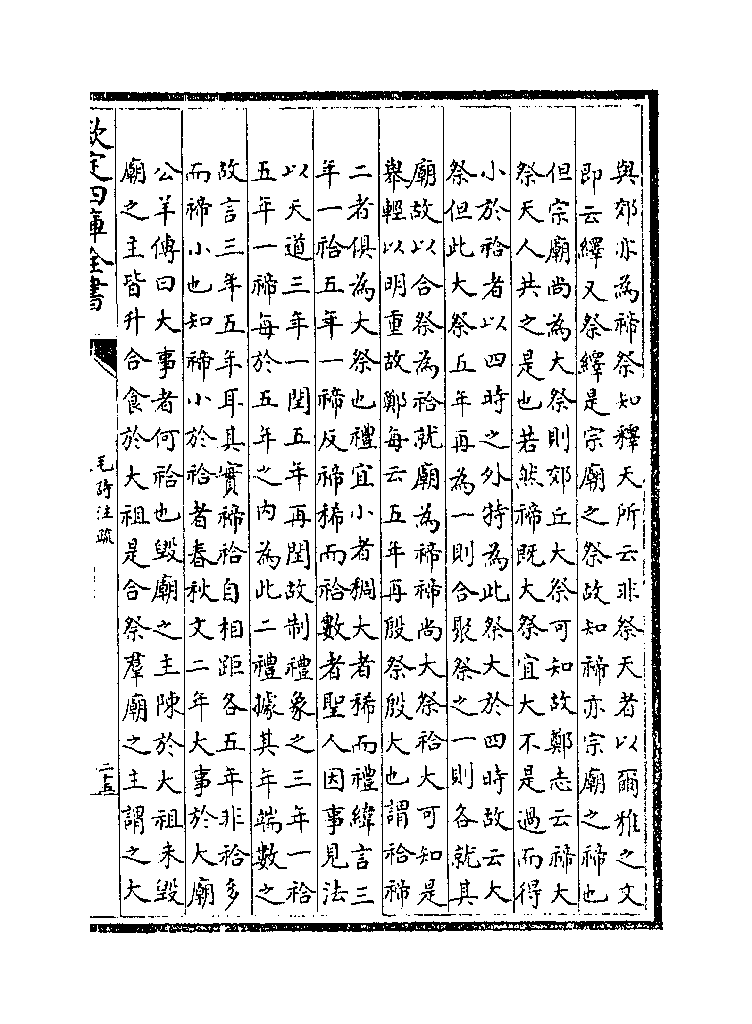 與郊亦為禘祭知釋天所云非祭天者以爾雅之文
即云繹又祭繹是宗廟之祭故知禘亦宗廟之禘也
但宗廟尚為大祭則郊丘大祭可知故鄭志云禘大
祭天人共之是也若然禘既大祭宜大不是過而得
小於祫者以四時之外特為此祭大於四時故云大
祭但此大祭五年再為一則合聚祭之一則各就其
廟故以合祭為祫就廟為禘禘尚大祭祫大可知是
舉輕以明重故鄭每云五年再殷祭殷大也謂祫禘
二者俱為大祭也禮宜小者稠大者稀而禮緯言三
年一祫五年一禘反禘稀而祫數者聖人因事見法
以天道三年一閏五年再閏故制禮象之三年一祫
五年一禘每於五年之內為此二禮據其年端數之
故言三年五年耳其實禘祫自相距各五年非祫多
而禘小也知禘小於祫者春秋文二年大事於大廟
公羊傳曰大事者何祫也毀廟之主陳於大祖未毀
廟之主皆升合食於大祖是合祭羣廟之主謂之大
欽定四庫全書
毛詩注疏
二十五